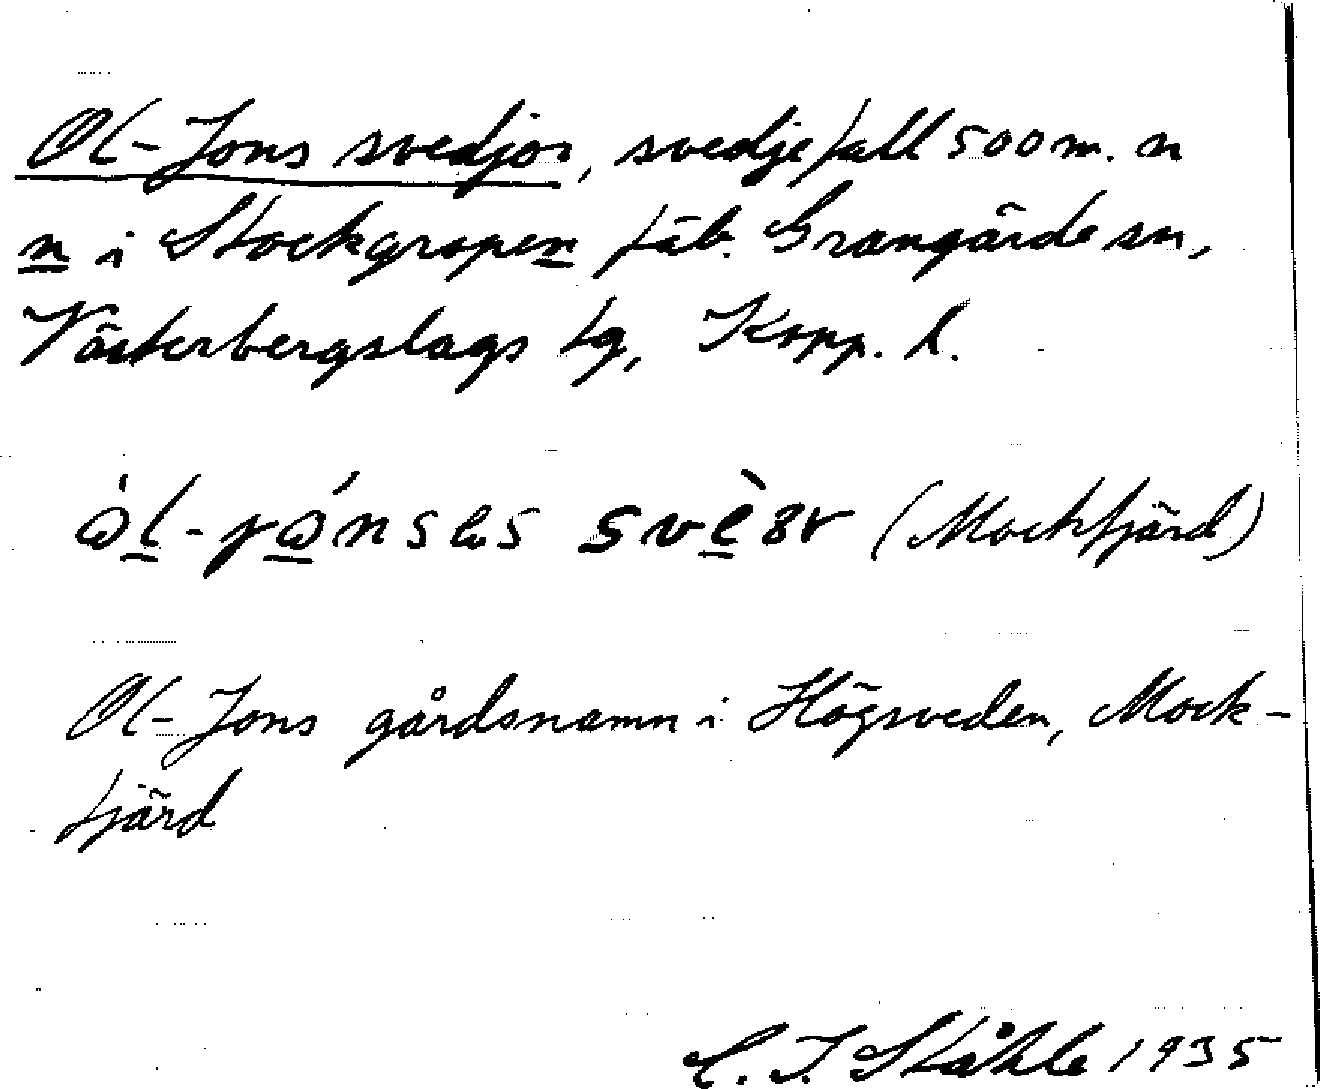 Ol-Jons svedjor, svedjefall 500 m. n
n i Stockgropen fäb. Grangärde sn,
Västerbergslags tg, Kopp. l.
(Mockfjärd)
Ol-Jons gårdsnamn i Högsveden, Mock-
fjärd
C. I. Ståhle 1935